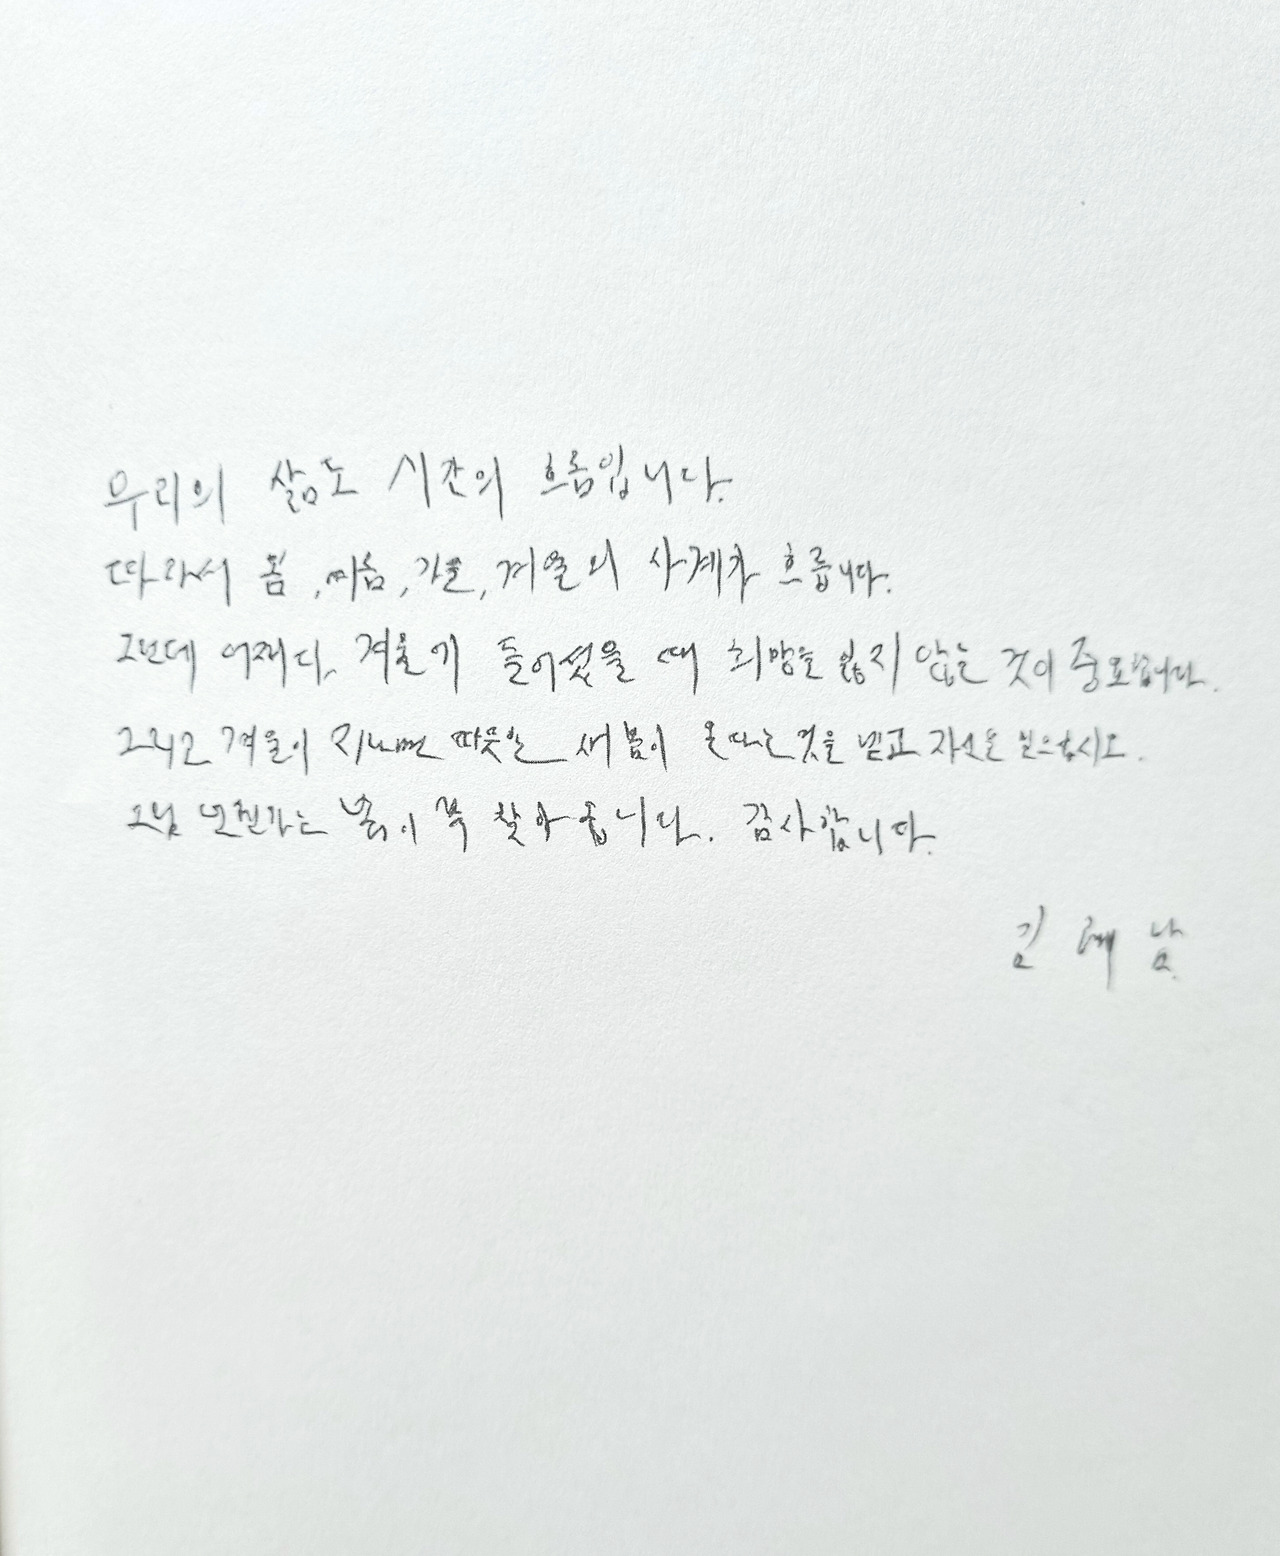 우리의 삶도 시간의 흐름입니다.
따라서 봄, 여름, 가을, 겨울의 사계가 흐릅니다.
그런데 겨울기 들어섰을 때 희망을 잃지 않는 것이 중요합니다.
그리고 겨울이 지나면 따뜻한 새봄이 온다는 것을 믿고 자신을 믿으십시오.
그럼 언젠가는 봄이 꼭 찾아옵니다. 감사합니다.
김혜남